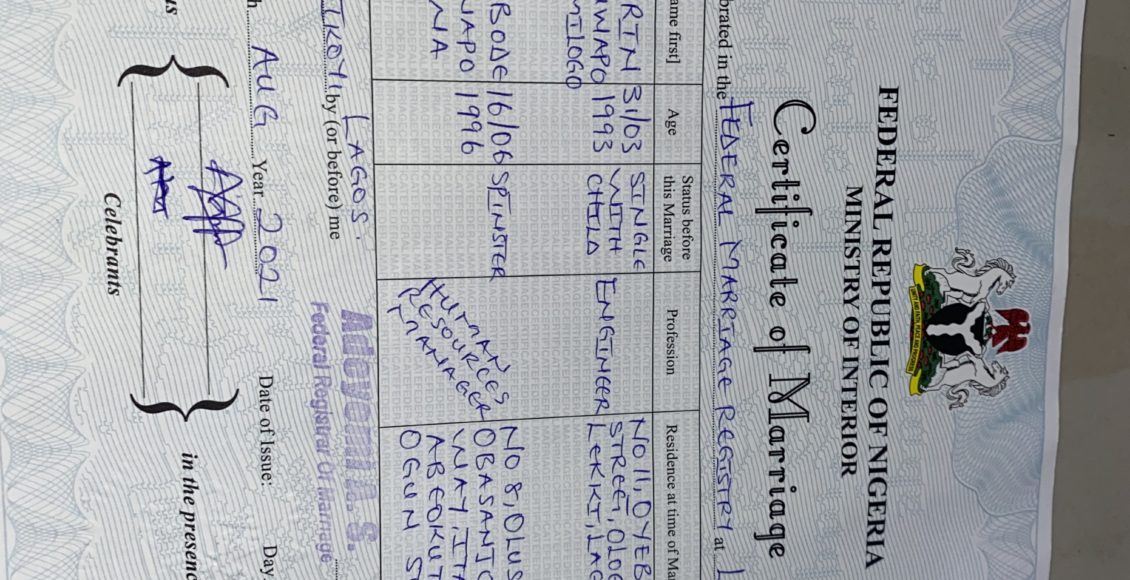 FEDERAL REPUBLIC OF NIGERIA
MINISTRY OF INTERIOR
Certificate of Marriage
brated in the FEDERAL MARRIAGE REGISTRY at L
ame first]
Age
Status before
this Marriage
Profession
Residence at time of Ma
RIN
WAPO
MILOGO
31/03
1993
SINGLE
WITH
CHILD
ENGINEER
NO 11, OYEB
STREET, OLO
LEKKI, LAG
BODE
WAPO
NA
16/06
1996
SPINSTER
HUMAN
RESOURCES
MANAGER
NO 8, OLUS
OBASANJO
WAY, ITA
ABEOKUT
OGUN ST
LAGOS.
IKOYI by (or before) me
Adeyemi A. S.
Federal Registrar Of Marriage
h AUG Year 2021 Date of Issue: Day
us
Celebrants
in the presenc